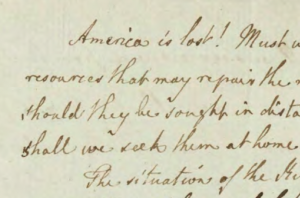 America is lost! Must
resources that may repair the
should they be sought in dista
shall we seek them at home
The situation of the